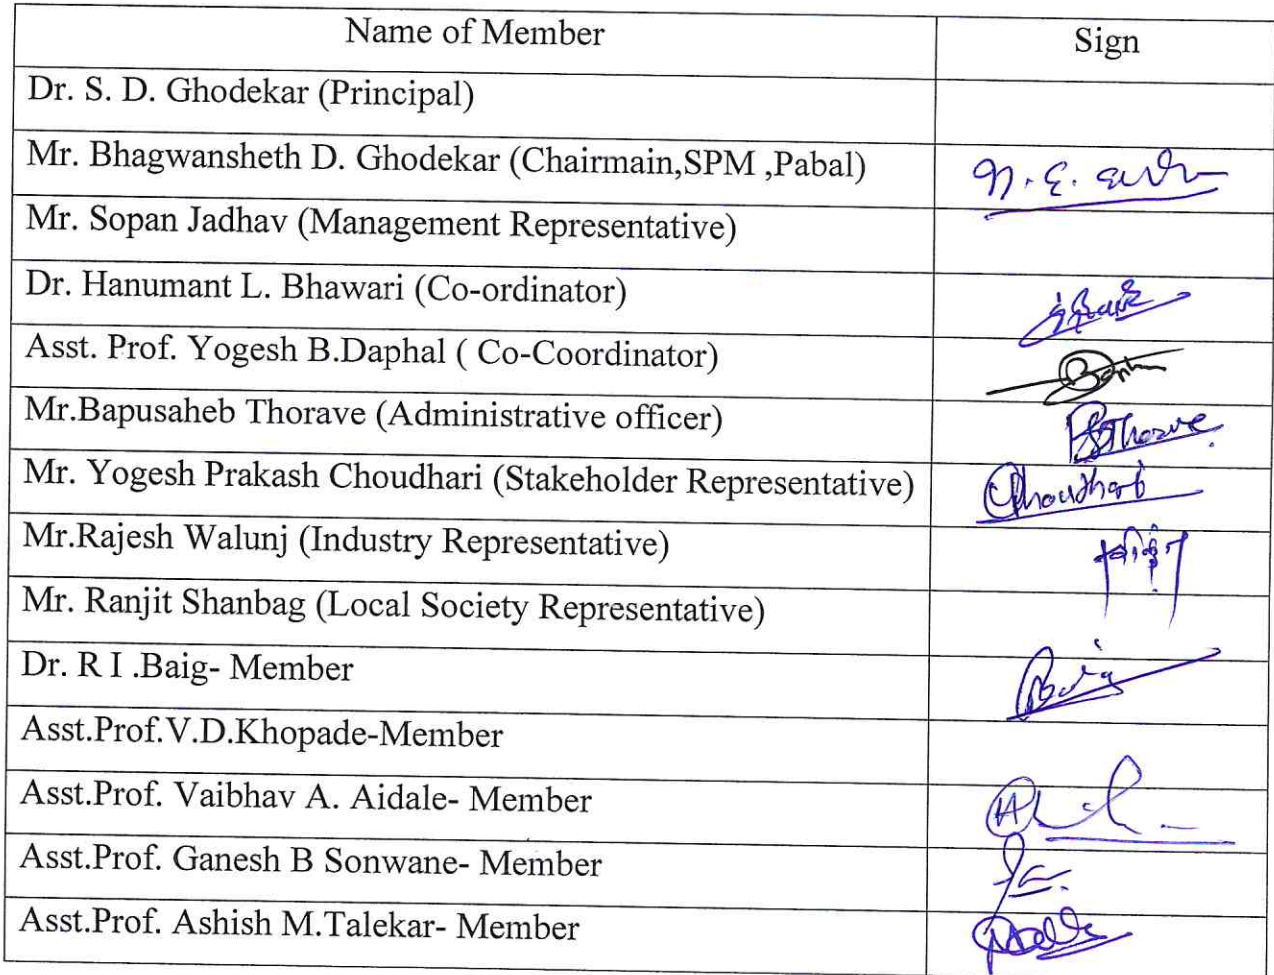 Name of Member Sign
Dr. S. D. Ghodekar (Principal)
Mr. Bhagwansheth D. Ghodekar (Chairmain,SPM ,Pabal)
Mr. Sopan Jadhav (Management Representative)
Dr. Hanumant L. Bhawari (Co-ordinator)
Asst. Prof. Yogesh B.Daphal ( Co-Coordinator)
Mr.Bapusaheb Thorave (Administrative officer) Thorave
Mr. Yogesh Prakash Choudhari (Stakeholder Representative)
Mr.Rajesh Walunj (Industry Representative)
Mr. Ranjit Shanbag (Local Society Representative)
Dr. R I .Baig- Member
Asst.Prof.V.D.Khopade-Member
Asst.Prof. Vaibhav A. Aidale- Member
Asst.Prof. Ganesh B Sonwane- Member
Asst.Prof. Ashish M.Talekar- Member